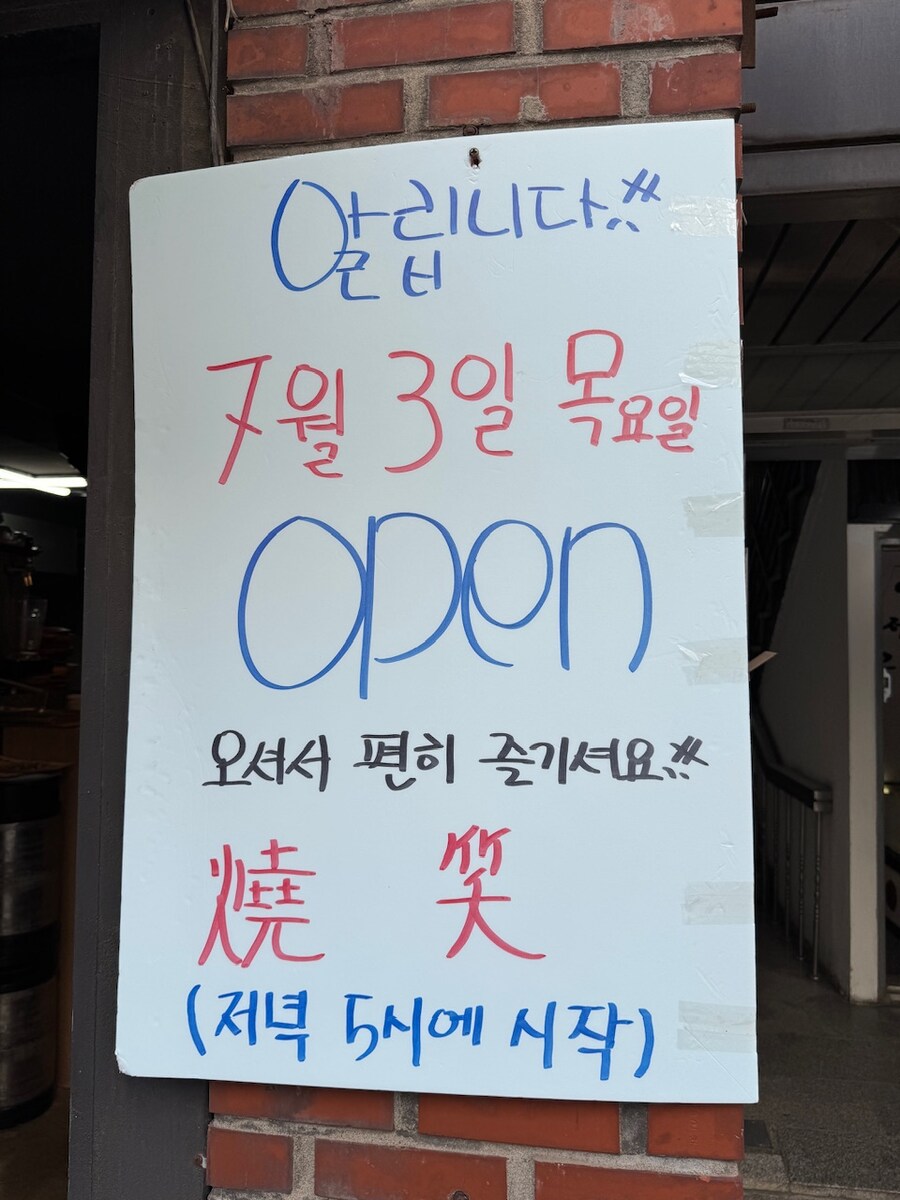 알립니다!!
7월 3일 목요일
open
오셔서 편히 즐기셔요!!
燒 笑
(저녁 5시에 시작)